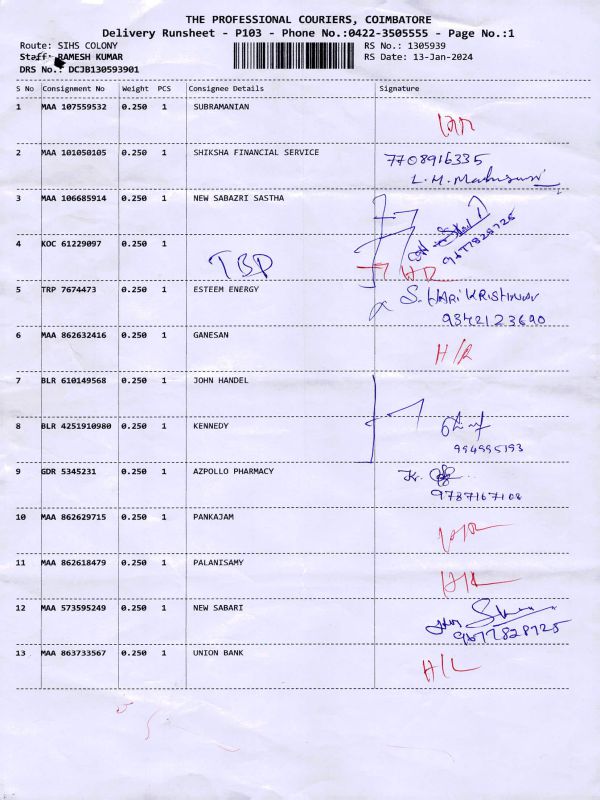 THE PROFESSIONAL COURIERS, COIMBATORE
Delivery Runsheet - P103 - Phone No.:0422-3505555 - Page No.:1
Route: SIHS COLONY
RS No.: 1305939
Staff: RAMESH KUMAR
RS Date: 13-Jan-2024
DRS No.: DCJB130593901
S No Consignment No Weight PCS Consignee Details Signature
1 MAA 107559532 0.250 1 SUBRAMANIAN
2 MAA 101050105 0.250 1 SHIKSHA FINANCIAL SERVICE 7708916335
L.M.
3 MAA 106685914 0.250 1 NEW SABAZRI SASTHA
9677828725
4 KOC 61229097 0.250 1
TBP
H/R
5 TRP 7674473 0.250 1 ESTEEM ENERGY S. HARIKRISHNAN
9342123690
6 MAA 862632416 0.250 1 GANESAN
H/R
7 BLR 610149568 0.250 1 JOHN HANDEL
8 BLR 4251910980 0.250 1 KENNEDY
994995193
9 GDR 5345231 0.250 1 AZPOLLO PHARMACY
9787167108
10 MAA 862629715 0.250 1 PANKAJAM
H/R
11 MAA 862618479 0.250 1 PALANISAMY
H/R
12 MAA 573595249 0.250 1 NEW SABARI
9677828725
13 MAA 863733567 0.250 1 UNION BANK
H/L